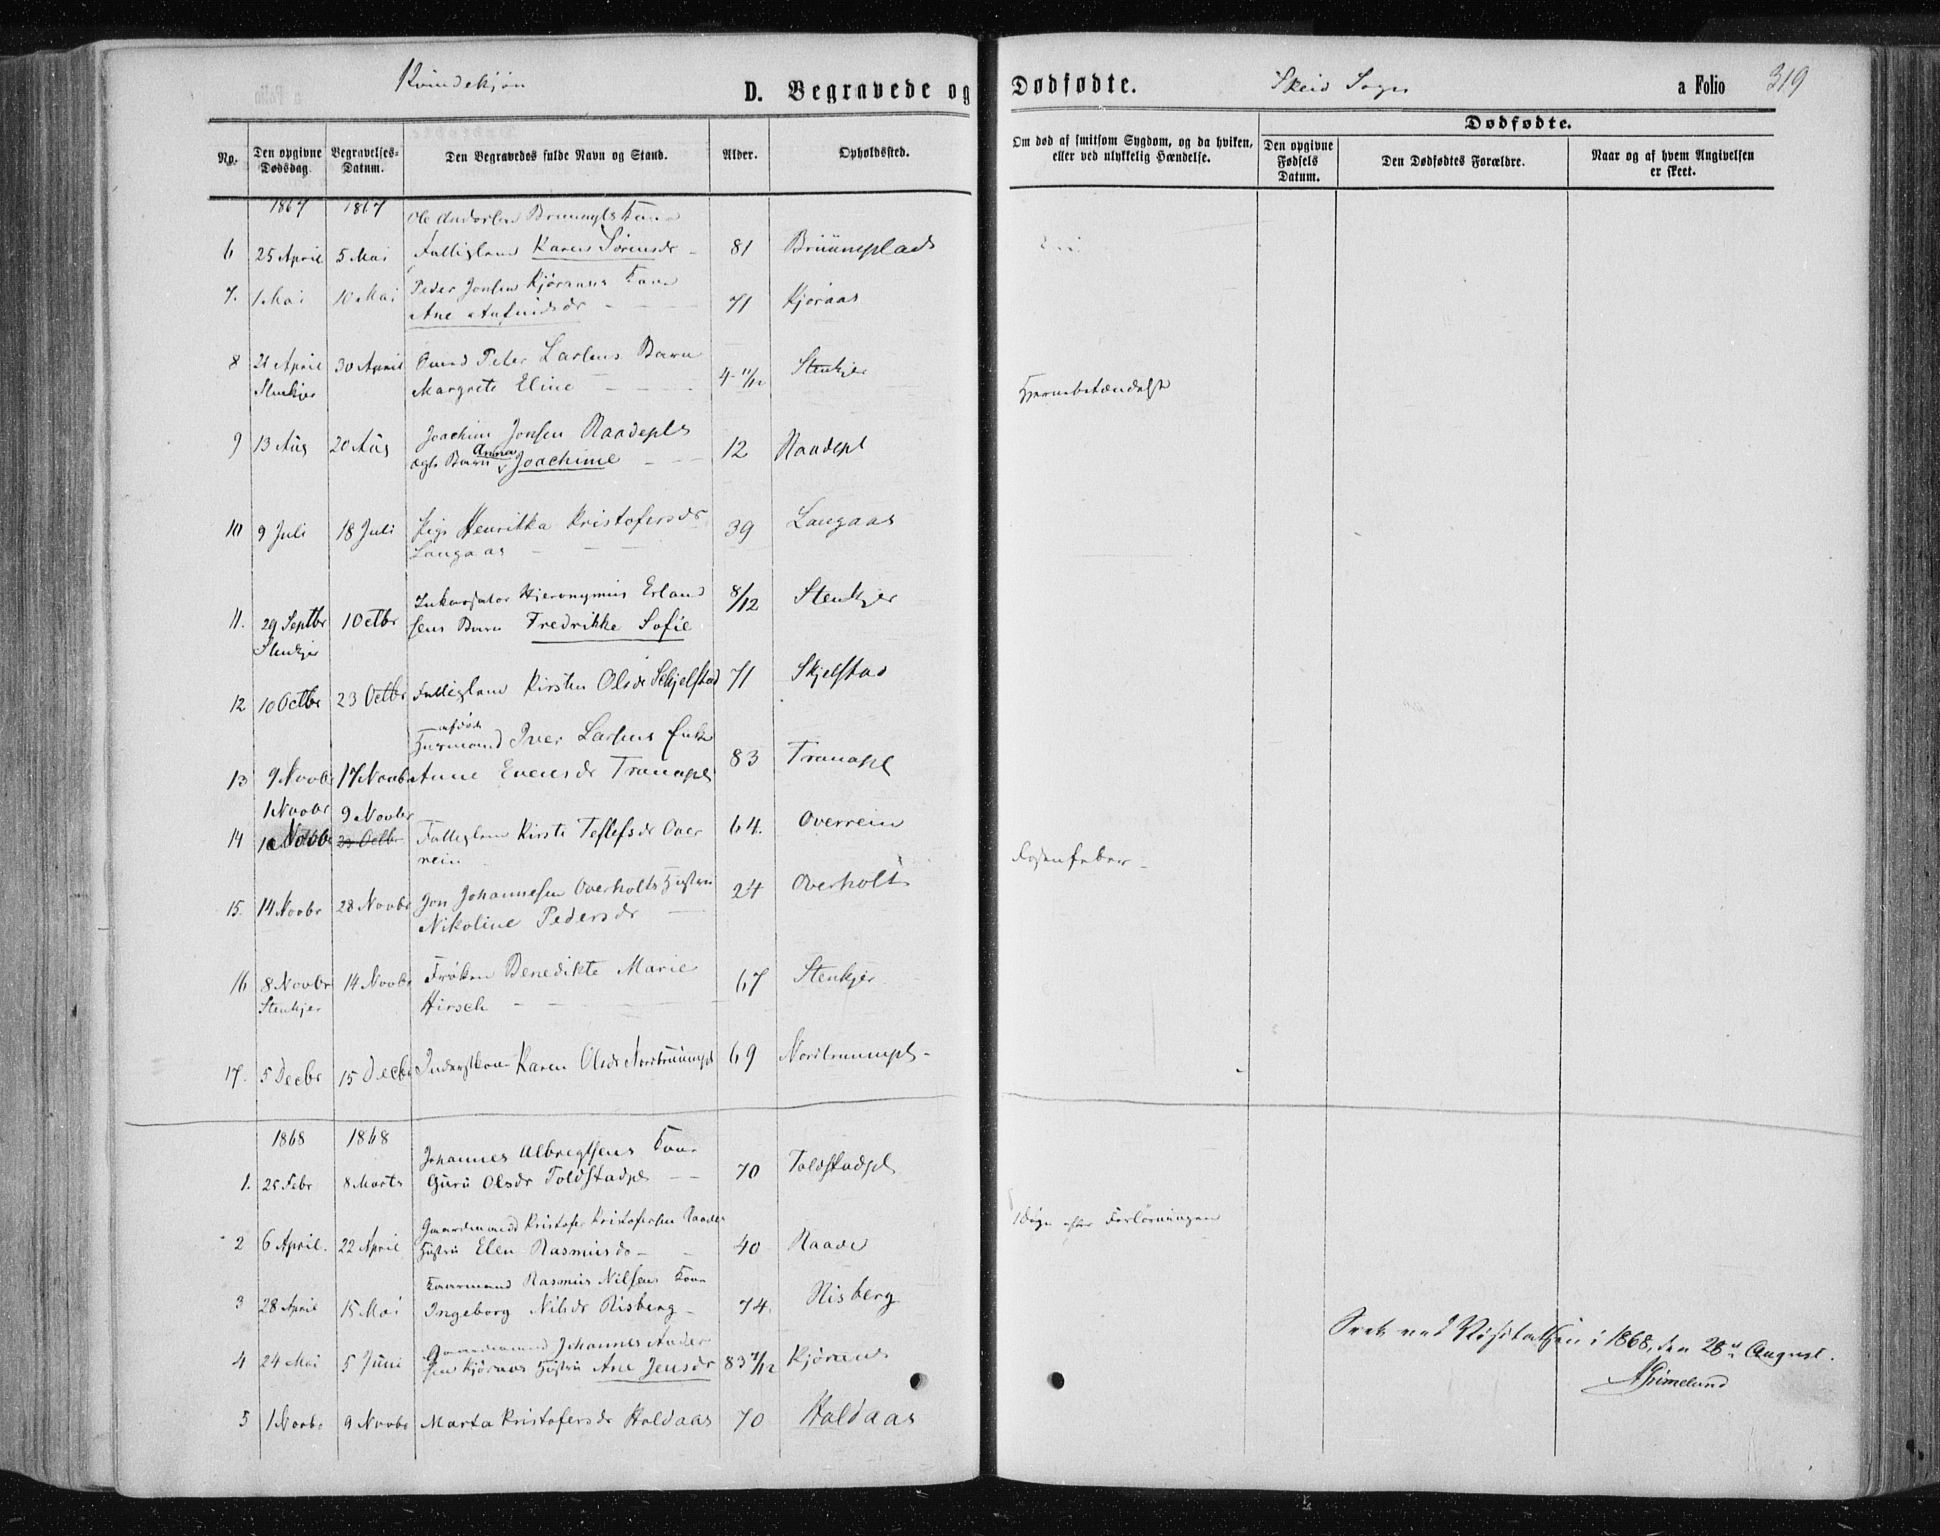 Kvindekjøn
D. Begravede og Dødfødte.
Skeid Sogn
a Folio 319
No.
Den opgivne Dødsdag.
Begravelses-Datum.
Den Begravedes fulde Navn og Stand.
Alder.
Opholdssted.
Om død af smitsom Sygdom, og da hvilken, eller ved ulykkelig Hændelse.
Dødfødte.
Den opgivne Fødsels Datum.
Den Dødfødtes Forældre.
Naar og af hvem Angivelsen er skeet.
1867 1867
6 25 April 5 Mai Fattiglem Karen Sørensdr 81 Brüünsplads
7. 1 Mai 10 Mai Peder Jonsen Kjøraases Kone
Ane Anfindsdr 71 Kjøraas
8 21 April 30 April Peter Larsens Barn
Stenkjer Margrete Eline 4 11/12 Stenkjer Hjernebetændelse
9 13 Aug 20 Aug Joachim Jonsen Raadepls
ægte Barn Anna Joachime 12 Raadepl
10 9 Juli 18 Juli Pige Henrikka Kristofersdr
Langaas 39 Langaas
11. 29 Septbr 1 Octbr Inkassator Hieronymus Erland
Stenkjer sens Barn Fredrikke Sofie 8/12 Stenkjer
12 10 Octbr 23 Octbr Fattiglem Kirsten Olsdr Skjelstad 71 Skjelstad
afdøde
Husmand Iver Larsens Enke
13 9 Novbr 17 Novbr Anne Evensdr Tranapl 83 Tranapl
1 Novbr 9 Novbr
14 Novbr 23 Octbr Fattiglem Kirsti Teflefsdr Over
rein 64. Overrein
15. 14 Novbr 28 Novbr Jon Johannesen Overholts Hustru
Nikoline Pedersdr 24 Overholt
16 8 Novbr 14 Novbr Frøken Benedikte Marie
Stenkjer Hirsch 67 Stenkjer
17. 5 Decbr 15 Decbr Karen Olsdr 69
1868 1868
Johannes Albregtsens Kone
1. 25 Febr 8 Marts Guru Olsdr Toldstadpl 70 Toldstadpl
Gaardmand Kristofer Kristofersen Raades
2 6 April. 22 April Hustru Elen Rasmusdr 40 Raade
Rasmus Nilsens Kone
3 28 April 15 Mai Ingeborg Nilsdr Risberg 74. Risberg
Gaardmand Johannes Ander
4 24 Mai 5 Juni sen Kjøraas Hustru Ane Jensdr 83 7/12 Kjøraas
5 1 Novbr 9 Novbr Marta Kristofersdr Haldaas 70 Haldaas
Seet ved Visitatsen i 1868, den 28de August.
AGrimelund